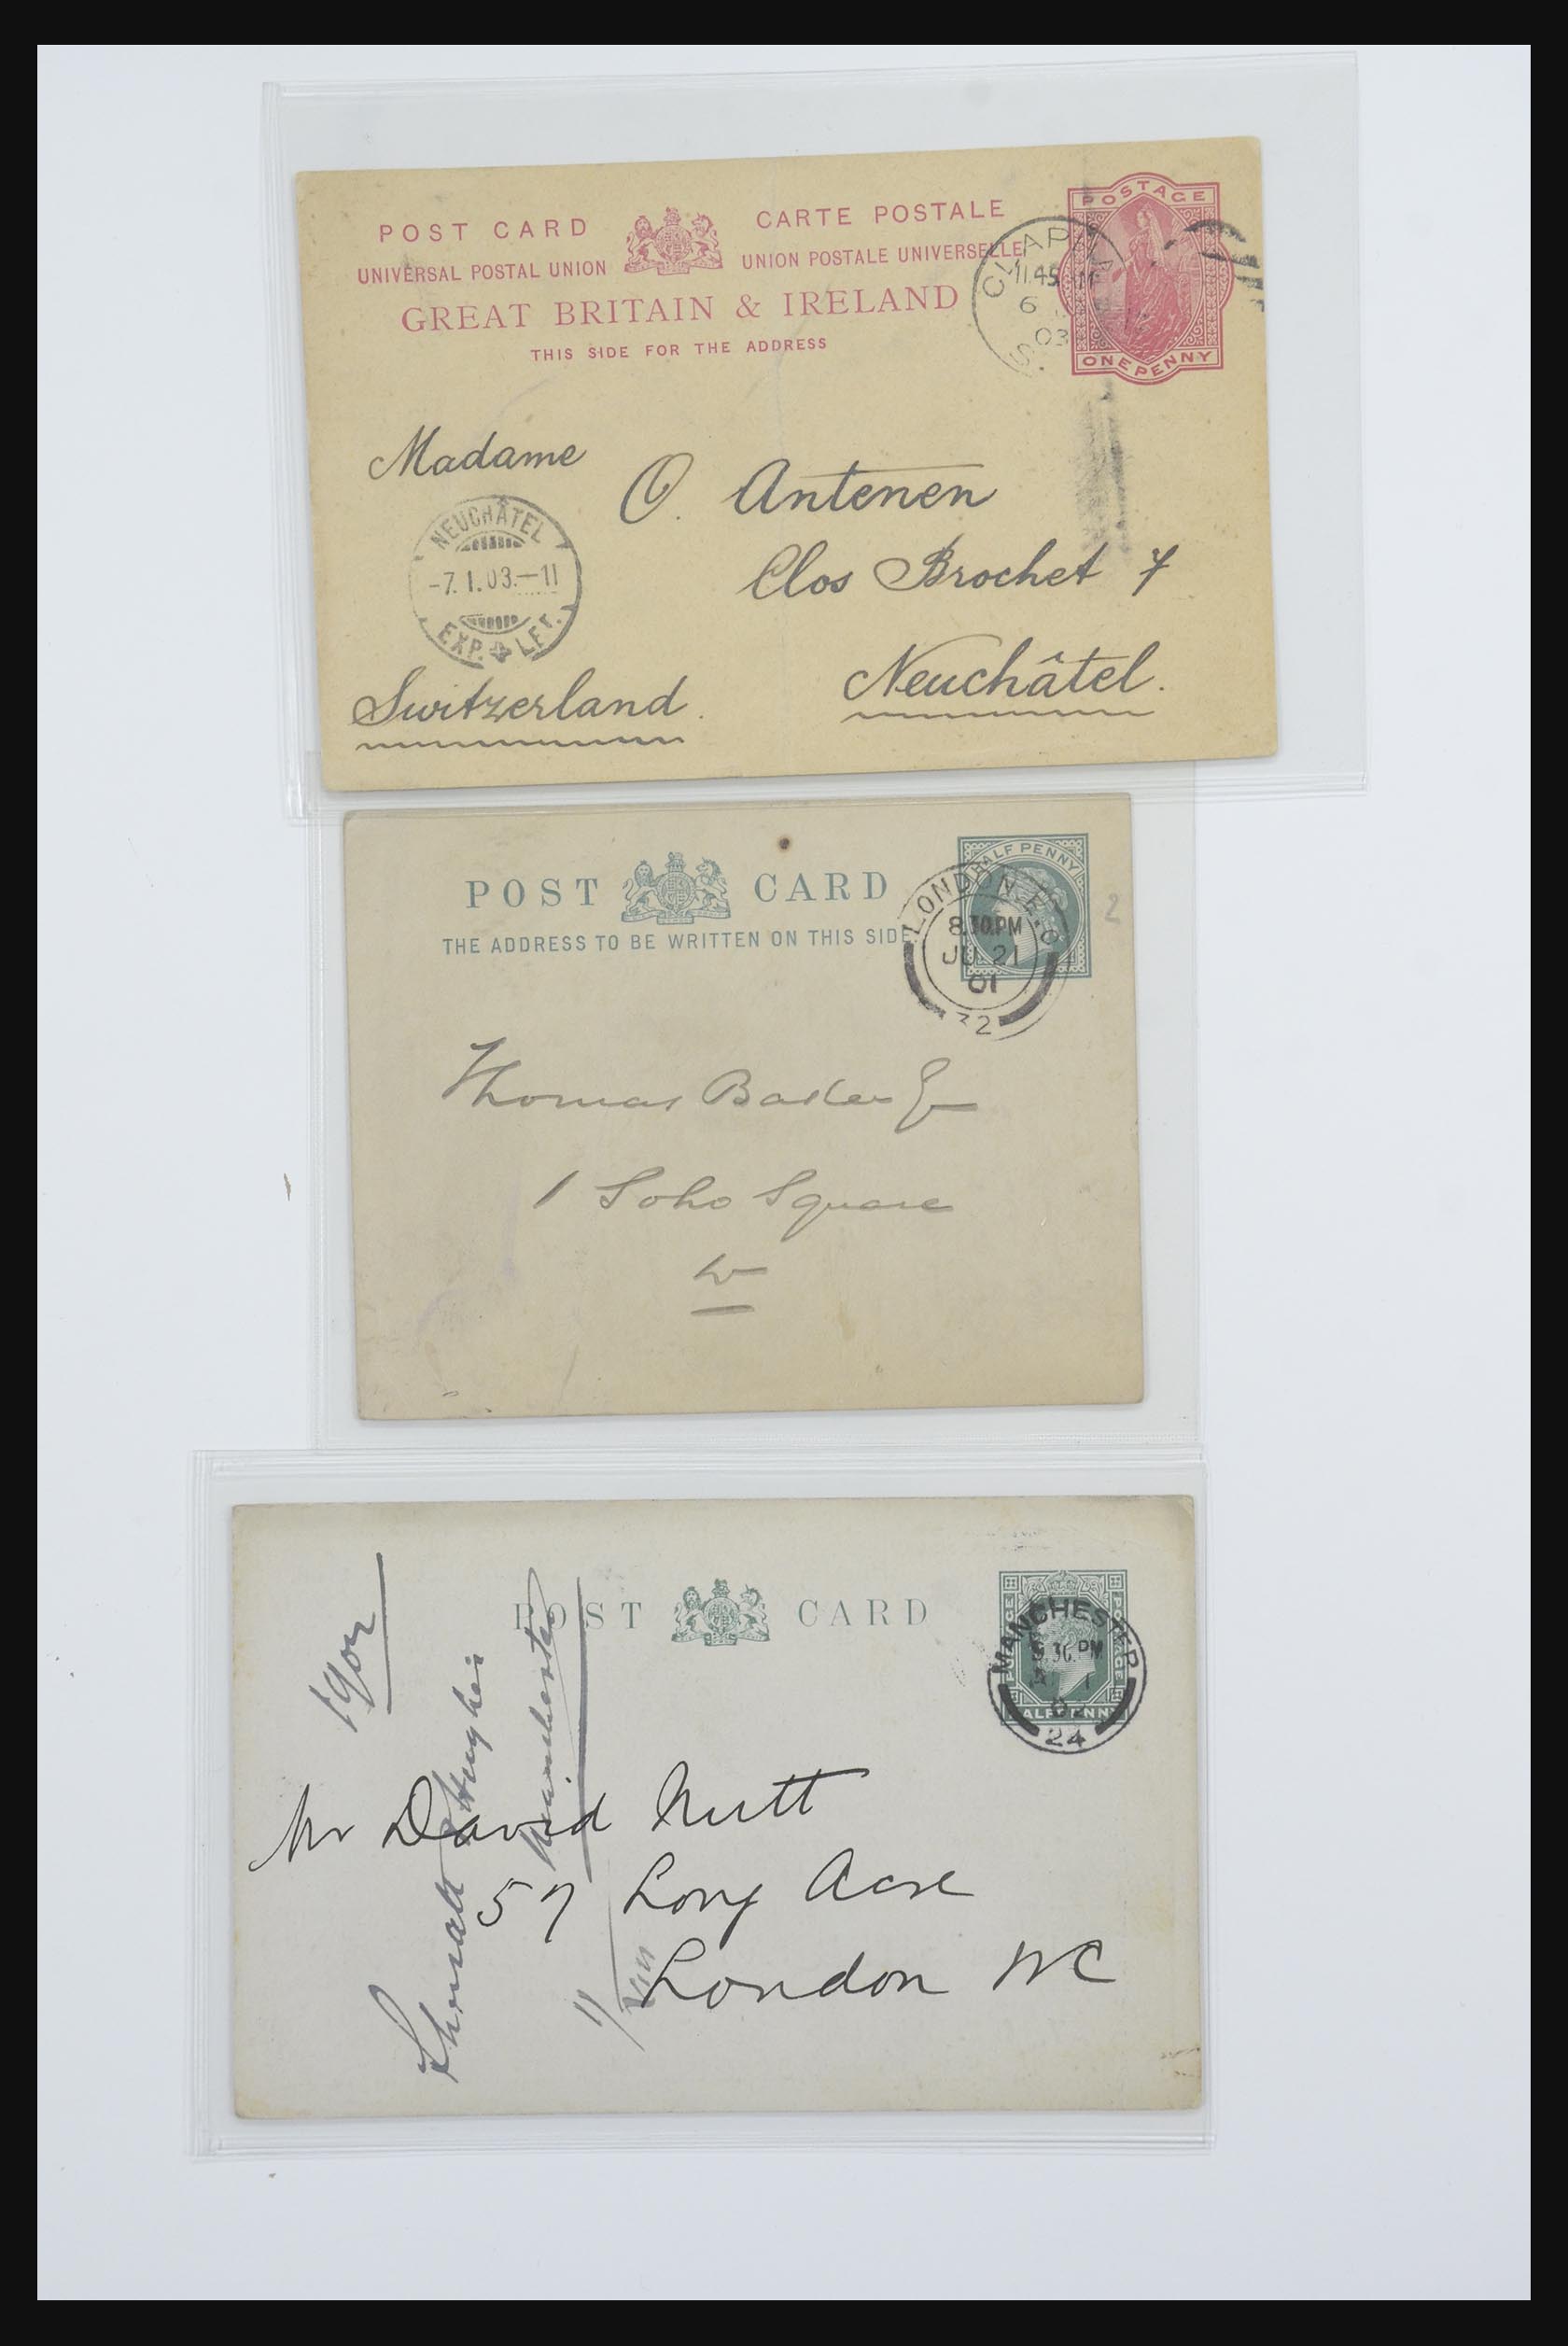 POST CARD
CARTE POSTALE
UNIVERSAL POSTAL UNION
UNION POSTALE UNIVERSELLE
GREAT BRITAIN & IRELAND
THIS SIDE FOR THE ADDRESS
POSTAGE
ONE PENNY
11.45
6
03
S.
Madame
O. Antenen
Clos Brochet 7
Neuchâtel.
Switzerland.
NEUCHÂTEL
-7.1.03.-11
EXP. LET.
POST CARD
THE ADDRESS TO BE WRITTEN ON THIS SIDE
HALF PENNY
LONDON.E.C
8.30.PM
JU 21
01
32
2
Thomas
1 Soho Square
W
POST CARD
MANCHESTER
.30.PM
24
Mr David Nutt
57 Long Acre
London WC
Hughes
Manchester